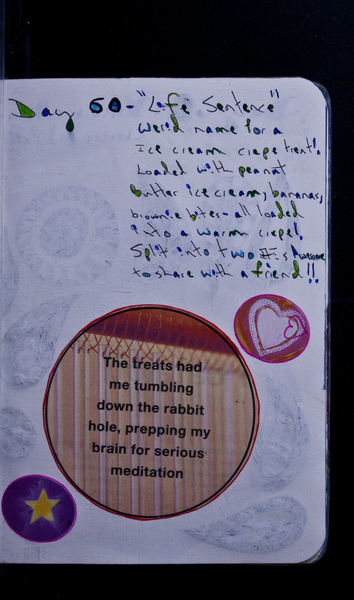 Day 60 - "Life Sentence"
Weird name for a
Ice cream crepe treat!
Loaded with peanut
butter ice cream, bananas,
brownie bites - all loaded
into a warm crepe!
Split into two It is Awesome
to share with a friend!!
The treats had
me tumbling
down the rabbit
hole, prepping my
brain for serious
meditation